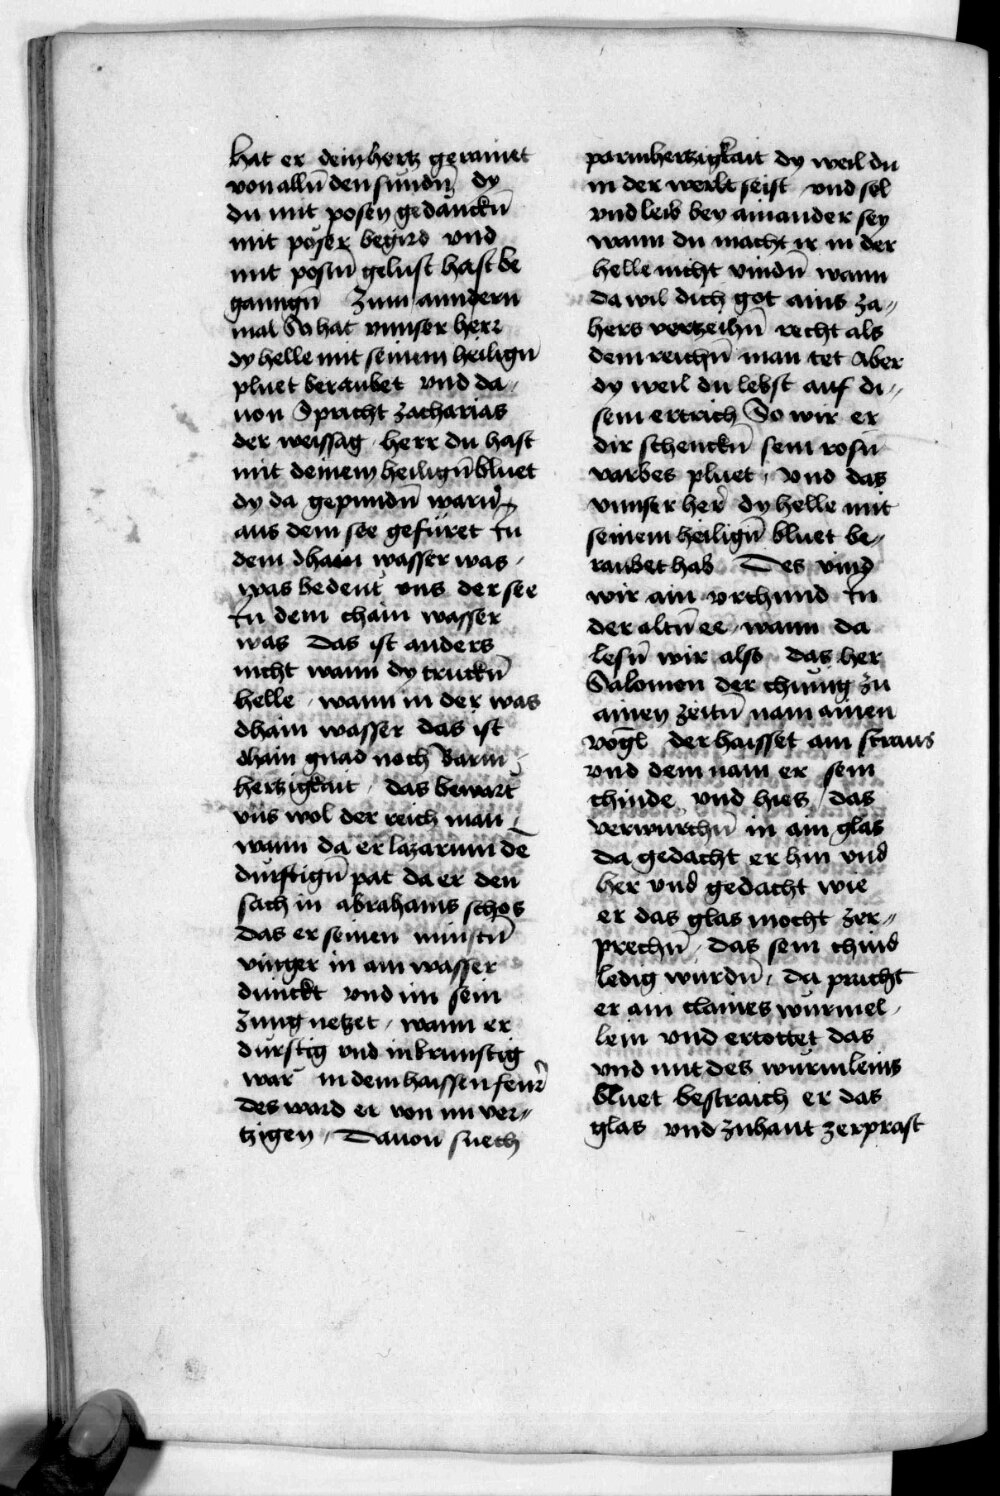 hat er dein hertz gerainet
von allñ den sundñ dy
du mit posen gedånckñ
mit pöser begird vnd
mit posñ gelust hast be
ganngñ Zum anndern
mal So hat vnnser herr
dy helle mit seinem heiligñ
pluet beraubet vnd da„
uon Spricht zacharias
der weissag herr du hast
mit deinem heiligñ bluet
dy da gepundñ warñ
aus dem see gefüret In
dem dhain wasser was
was bedeut vns der see
In dem chain wasser
was Das ist anders
nicht wann dy truckñ
helle wann in der was
dhain wasser das ist
dhain gnad noch Barm
hertzigkait das bewart
vns wol der reich man
wann da er lazarum dē
durftigñ pat da er den
sach in abrahams schos
das er seinen minstñ
vinger in ain wasser
dunckt vnd im sein
zung netzet wann er
dürstig vnd inbrunstig
war in dem haissen feur̄
des ward er von im ver„
tzigen Dauon suech
parmhertzigkait dy weil du
in der werlt seist vnd sel
vnd leib bey ainander sey
wann du macht ir in der
helle nicht vindñ wann
da wil dich got ains za„
hers vertzeihñ recht als
dem reichñ man tet Aber
dy weil du lebst auf di„
sem ertrich So wir er
dir schenckñ sein rosñ
varbes pluet vnd das
vnnser her̄ dy helle mit
seinem heiligñ bluet be„
raubet hab Des vind
wir ain vrchund In
der altñ ee wann da
lesñ wir also das her
Salomon der chunig zu
ainen zeitñ nam ainen
vogl der haisset ain straus
vnd dem nam er sein
chinde vnd hies das
verwurchñ in ain glas
da gedacht er hin vnd
her vnd gedacht wie
er das glas mocht zer„
prechñ das sein chind
ledig wurdñ da pracht
er ain claines würmel
lein vnd ertottet das
vnd mit des würmleins
bluet bestraich er das
glas vnd zuhant zerprast